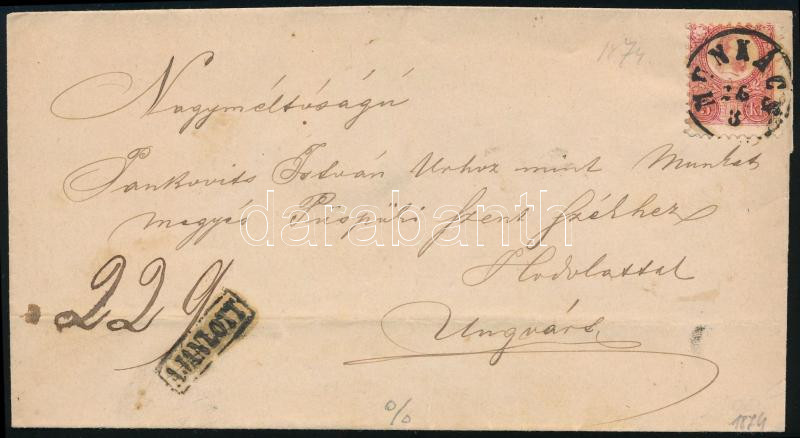 1874
MUNKÁCS
26
3
5 Kr
Nagyméltóságú
Pankovits István Urhoz mint Munkat
megyés Püspöki Szent Székhez
Hodolattal
Ungvárt
229
AJÁNLOTT
darabanth
%
1874